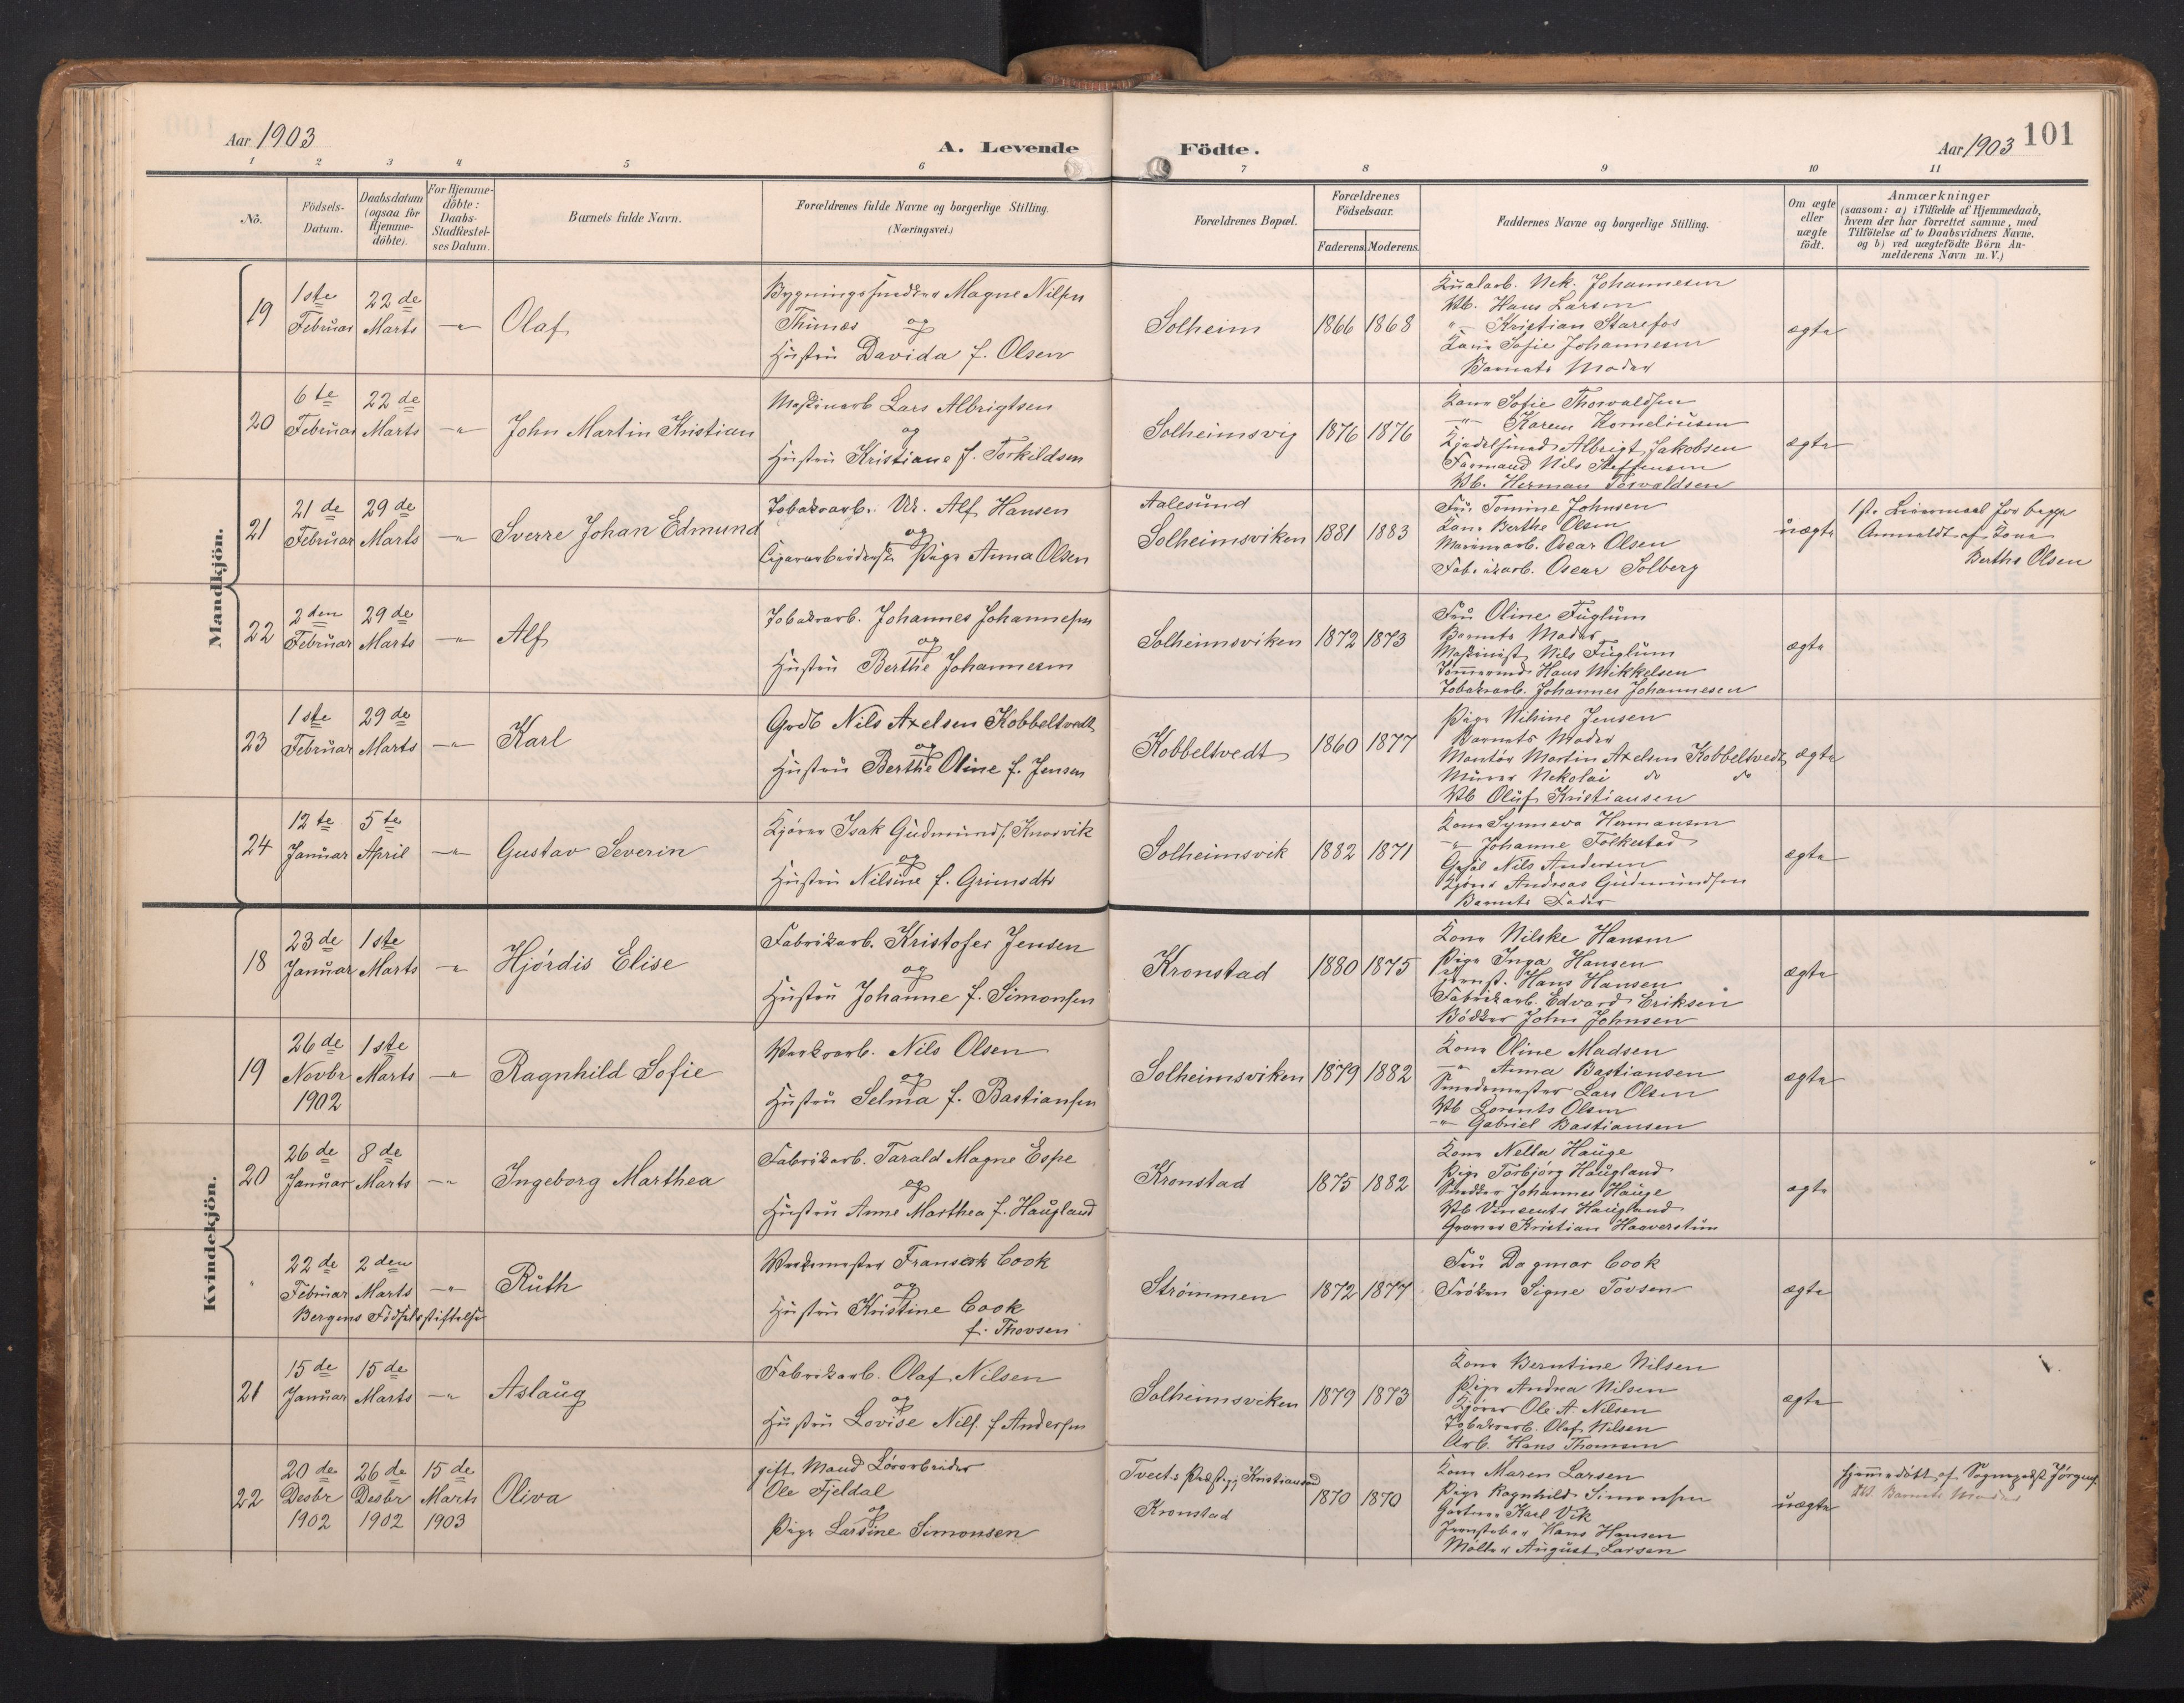 Aar 1903
A. Levende Födte.
Aar 1903 101
1 2 3 4 5 6 7 8 9 10 11
Nö.
Födsels-Datum.
Daabsdatum (ogsaa for Hjemme-döbte).
For Hjemme-döbte: Daabs-Stadfæstel-ses Datum.
Barnets fulde Navn.
Forældrenes fulde Navne og borgerlige Stilling. (Næringsvei.)
Forældrenes Bopæl.
Forældrenes Födselsaar.
Faderens. Moderens.
Faddernes Navne og borgerlige Stilling.
Om ægte eller uægte födt.
Anmærkninger (saasom: a) i Tilfælde af Hjemmedaab, hvem der har forrettet samme, med Tilföielse af to Daabsvidners Navne. og b) ved uægtefödte Börn An-melderens Navn m.V.)
Mandkjön.
19 1ste Februar 22de Marts -"- Olaf
Bygningssnedker Magne Nilsen
Thimes og
Hustru Davida f. Olsen
Solheim 1866 1868
Nek. Johannesen
Hans Larsen
"- Kristian Starefos
Kone Sofie Johannesen
Barnets Moder
ægte
20 6te Februar 22de Marts -"- John Martin Kristian
Maskinarb Lars Albrigtsen
og
Hustru Kristiane f. Torkildsen
Solheimsvig 1876 1876
Kone Sofie Thorvaldsen
-"- Karen Korneliusen
Kjedelsmed Albrigt Jakobsen
Formand Nils Steffensen
Herman Torvaldsen
ægte
21 21de Februar 29de Marts -"- Sverre Johan Edmund
Tobakarb. Ur. Alf Hansen
og
Cigararbeiderske Pige Anna Olsen
Aalesund
Solheimsviken 1881 1883
Fru Tomine Johnsen
Kone Berthe Olsen
Oscar Olsen
Fabrikarb. Oscar Solberg
uægte
1ste Leiermaal for begge
Anmeldt af Kone
Berthe Olsen
22 2den Februar 29de Marts -"- Alf
Tobakarb. Johannes Johannesen
og
Hustru Berthe Johannesen
Solheimsviken 1872 1873
Fru Oline Fuglum
Barnets Moder
Maskinist Nils Fuglum
Tömmermd. Hans Mikkelsen
Tobakarb. Johannes Johannesen
ægte
23 1ste Februar 29de Marts -"- Karl
Grdb Nils Axelsen Kobbeltvedt
og
Hustru Berthe Oline f. Jensen
Kobbeltvedt 1860 1877
Pige Nikine Jensen
Barnets Moder
Montör Martin Axelsen Kobbeltvedt
Murer Nekolai do do
Oluf Kristiansen
ægte
24 12te Januar 5te April -"- Gustav Severin
Kjörer Isak Gudmunds. Knarvik
og
Hustru Nilsine f. Grimsdtr
Solheimsvik 1882 1871
Kone Synneva Hermansen
-"- Johanne Folkestad
Nils Andersen
Kjörer Andreas Gudmundsen
Barnets Fader
ægte
Kvindekjön.
18 23de Januar 1ste Marts -"- Hjördis Elise
Fabrikarb. Kristofer Jensen
og
Hustru Johanne f. Simonsen
Kronstad 1880 1875
Kone Nilske Hansen
Pige Inga Hansen
Hans Hansen
Fabrikarb. Edvard Eriksen
Bödker John Johnsen
ægte
19 26de Novbr 1902 1ste Marts -"- Ragnhild Sofie
Værkarb. Nils Olsen
og
Hustru Selma f. Bastiansen
Solheimsviken 1879 1882
Kone Oline Madsen
-"- Anna Bastiansen
Smedemester Lars Olsen
Lorents Olsen
-"- Gabriel Bastiansen
ægte
20 26de Januar 8de Marts -"- Ingeborg Marthea
Fabrikarb. Tarald Magne Espe
og
Hustru Anne Marthea f. Haugland
Kronstad 1875 1882
Kone Nella Hauge
Pige Torbjörg Haugland
Snedker Johannes Hauge
Vincents Haugland
Kristian Haaverstun
ægte
" 22de Februar 2den Marts -"- Ruth
Bergens Födselsstiftelse
Værkmester Fransisk Cook
og
Hustru Kristine Cook
f. Thorsen
Strömmen 1872 1877
Fru Dagmar Cook
Fröken Signe Tovsen
ægte
21 15de Januar 15de Marts -"- Aslaug
Fabrikarb. Olaf Nilsen
og
Hustru Lovise Nils. f Andersen
Solheimsviken 1879 1873
Kone Berntine Nilsen
Pige Andrea Nilsen
Kjörer Ole A. Nilsen
Tobakarb. Olaf Nilsen
Arb. Hans Thomsen
ægte
22 20de Desbr 1902 26de Desbr 1902 15de Marts 1903 Oliva
gift Mand Lörarbeider
Ole Fjeldal
og
Pige Larsine Simonsen
Tveits Præstegj Kristiansand
Kronstad 1870 1870
Kone Maren Larsen
Pige Ragnhild Simonsen
Gartner Karl Vik
Jernstöber Hans Hansen
Möller August Larsen
uægte
Hjemmedöbt af Sogneprest Jörgens.
Barnets Moder